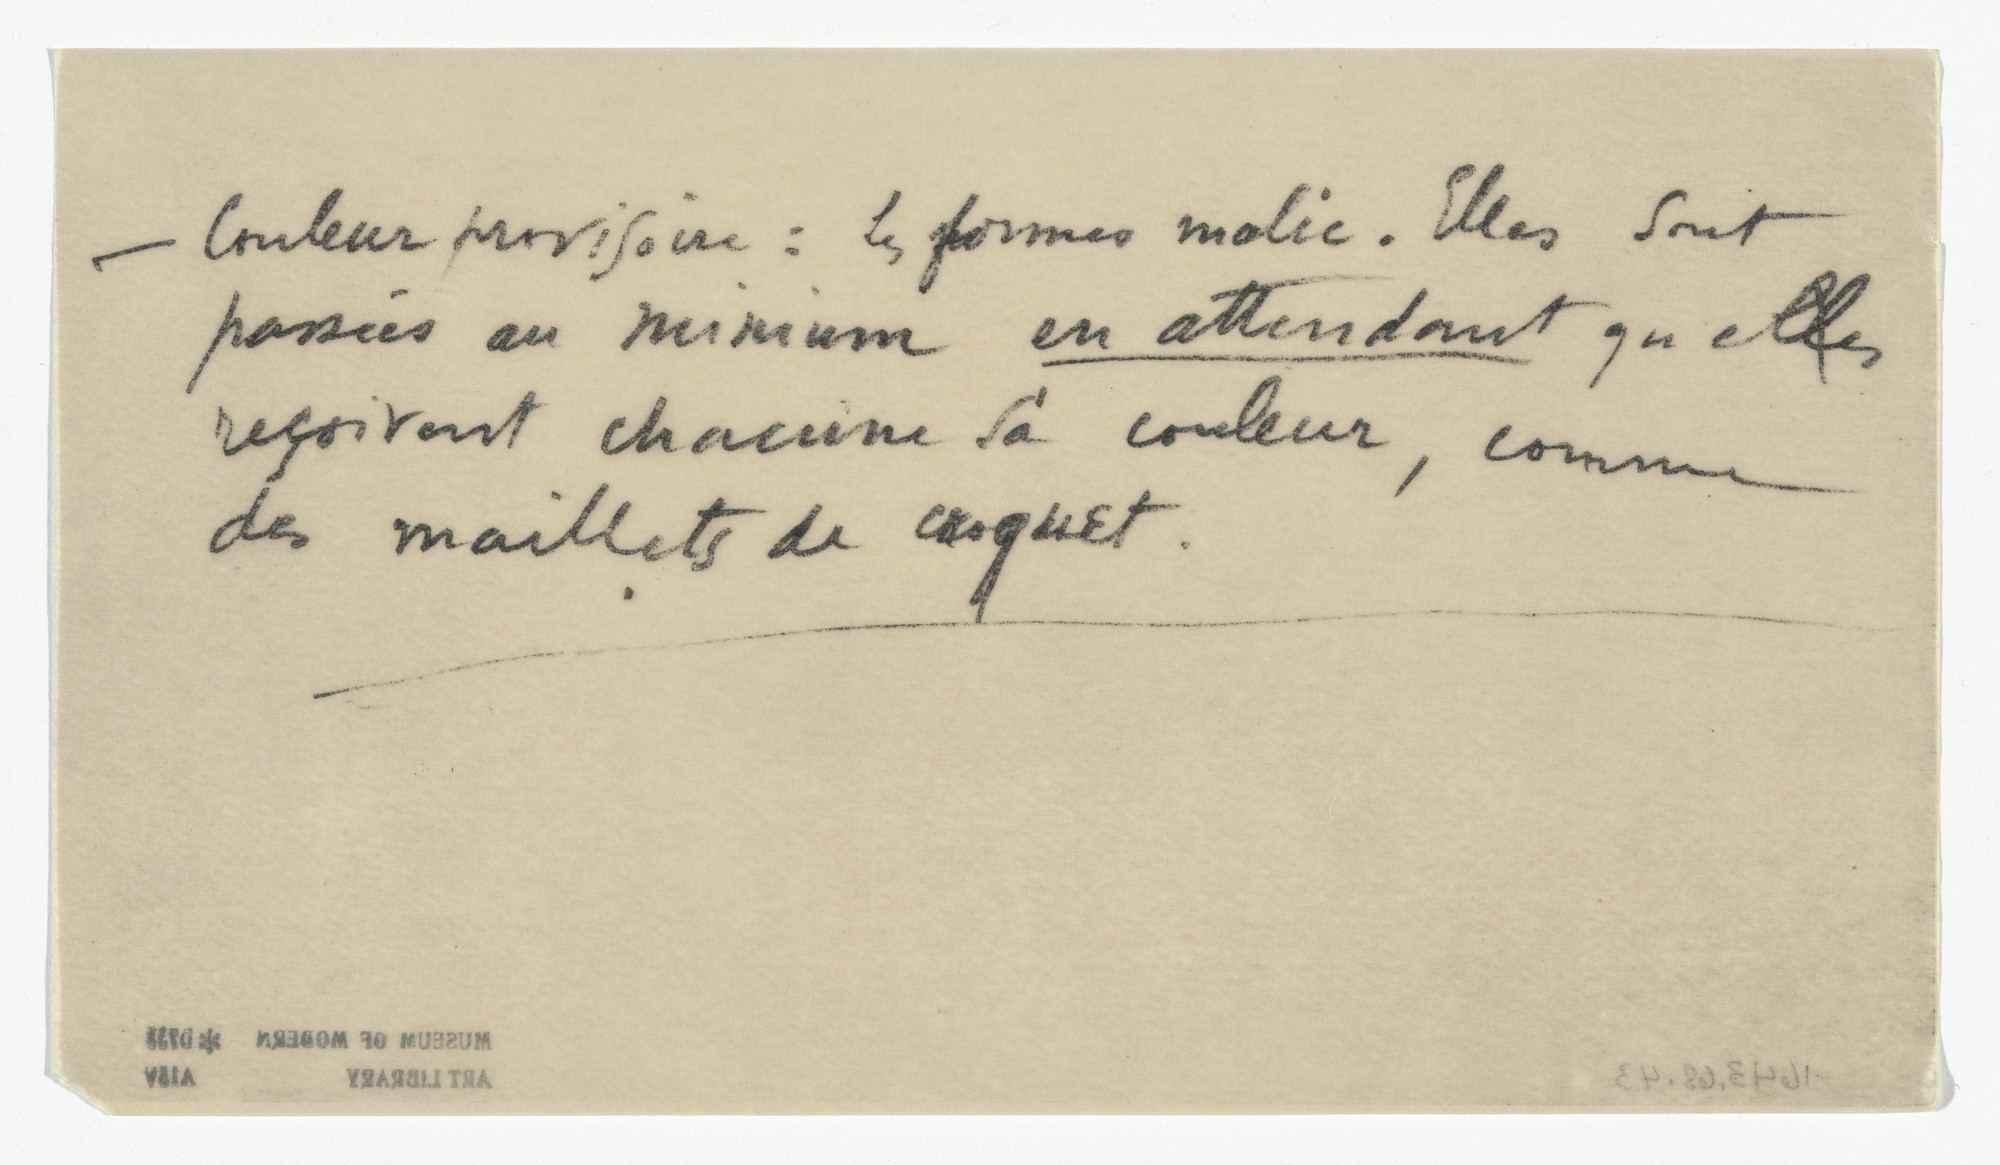 — Couleur provisoire : les formes malic. Elles sont
passées au minium en attendant qu elles
reçoivent chacune sa couleur, comme
des maillets de croquet.
MUSEUM OF MODERN
ART LIBRARY
1643.68.43